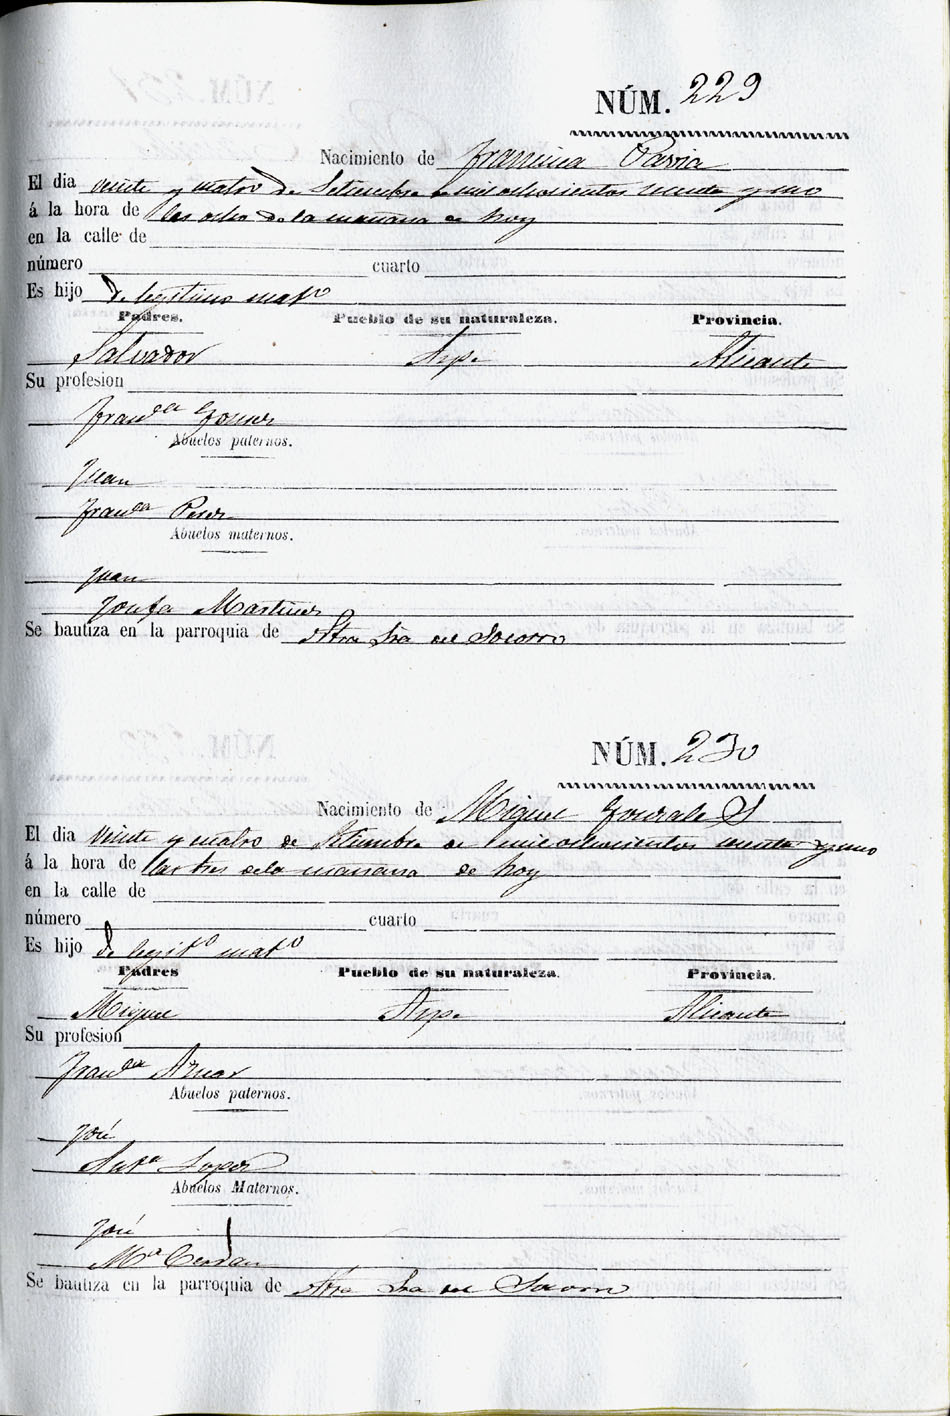 NÚM. 229
Nacimiento de Francisca Pavia
El dia veinte y cuatro de Setiembre de mil ochocientos sesenta y uno
á la hora de las ocho de la mañana de hoy
en la calle de
número cuarto
Es hijo de legitimo mat.o
Padres. Pueblo de su naturaleza. Provincia.
Salvador Aspe Alicante
Su profesion
Fran.ca Gomez
Abuelos paternos.
Juan
Fran.ca Perez
Abuelos maternos.
Juan
Josefa Martinez
Se bautiza en la parroquia de Ntra Sra del Socorro
NÚM. 230
Nacimiento de Miguel Gonzale
El dia veinte y cuatro de Setiembre de mil ochocientos sesenta y uno
á la hora de las tres de la mañana de hoy
en la calle de
número cuarto
Es hijo de legit.o mat.o
Padres Pueblo de su naturaleza. Provincia.
Miguel Aspe Alicante
Su profesion
Fran.ca Aznar
Abuelos paternos.
José
Lopez
Abuelos Maternos.
José
M.a Cerdan
Se bautiza en la parroquia de Ntra Sra del Socorro